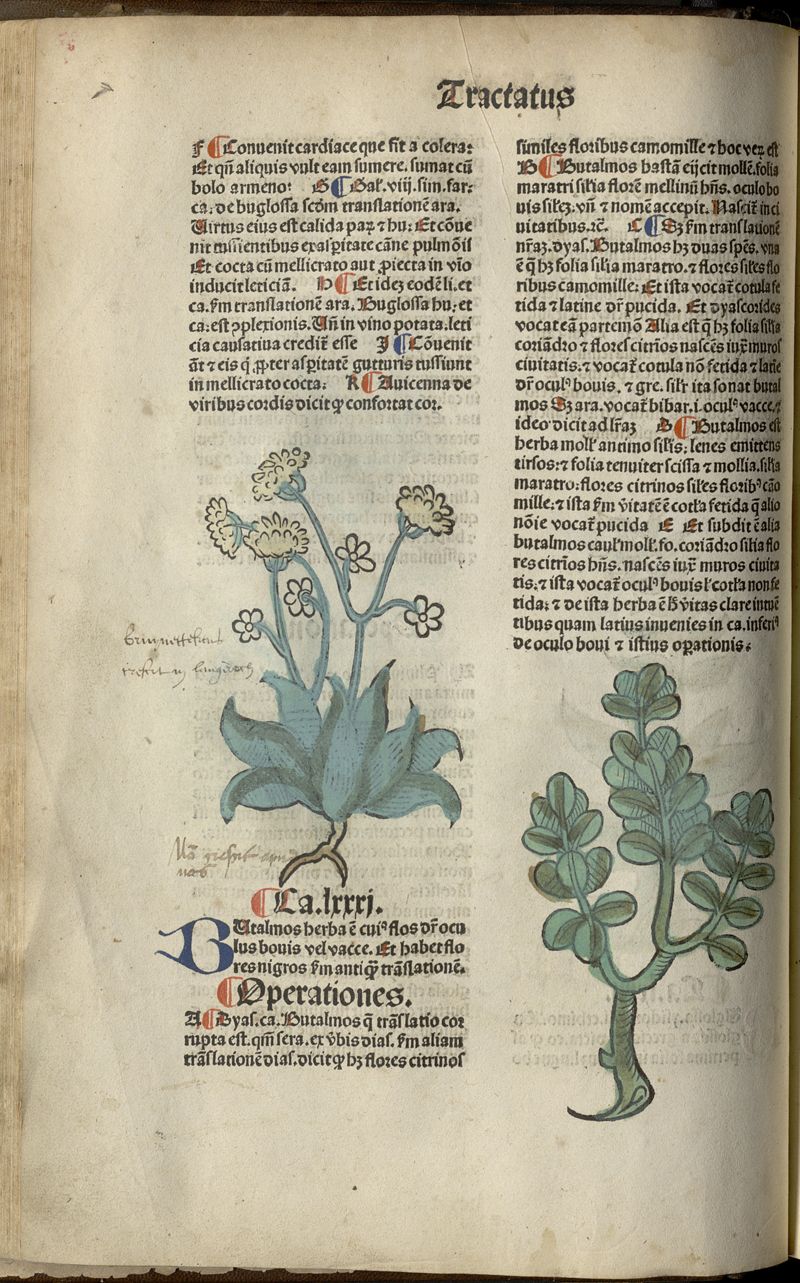 Tractatus
F Conuenit cardiace que fit a colera:
Et qñ aliquis vult eam sumere. sumat cũ
bolo armeno: G Gal. viij. sim. far.
ca. de buglossa scḋm translationẽ ara.
Uirtus eius est calida paꝝ ⁊ hu: Et cõue
nit tussientibus exasꝑitate cãne pulmõis
Et cocta cũ mellicrato aut ꝓiecta in viõ
inducit leticiã. H Et idez eodẽ li. et
ca. ẜm translationẽ ara. Buglossa hu. et
ca. est ꝯplexionis. Uñ in vino potata. leti
cia causatiua credit̃ esse I Cõuenit
ãt ⁊ eis q̃ ꝓpter asꝑitatẽ gutturis tussiunt
in mellicrato cocta: K Auicenna de
viribus cordis dicit ꝙ confortat cor.
Ca. lxxxj.
Butalmos herba ẽ cuiꝰ flos dr̃ ocu
lus bouis vel vacce. Et habet flo
res nigros ẜm antiq̃ꝫ trãslationẽ.
Operationes.
A Dyas. ca. Butalmos q̃ trãslatio cor
rupta est. qm̃ sera. ex v̾bis dias. ẜm aliam
trãslationẽ dias. dicit ꝙ hꝫ flores citrinos
similes floribus camomille ⁊ hoc veꝝ est
B Butalmos hastã eijcit mollẽ. folia
maratri sil̃ia florẽ mellinũ hñs. oculo bo
uis sil̃eꝫ. vñ ⁊ nomẽ accepit. Nascit̃ in ci
uitatibus. ⁊c̃. C Sꝫ ẜm translationẽ
nr̃aꝫ. dyas. Butalmos hꝫ duas sp̃es. vna
ẽ q̃ hꝫ folia sil̃ia maratro. ⁊ flores sil̃es flo
ribus camomille: Et ista vocat̃ cotula fe
tida ⁊ latine dr̃ pucida. Et dyascorides
vocat eã partemõ Alia est q̃ hꝫ folia sil̃ia
coriãdro ⁊ flores citrĩos nascẽs iuꝝ muros
ciuitatis: ⁊ vocat̃ cotula nõ fetida ⁊ latie
dr̃ oculꝰ bouis. ⁊ gre. sil̃r ita sonat butal
mos Sꝫ ara. vocat̃ bibar. i. oculꝰ vacce. ⁊
ideo dicit ad lr̃aꝫ D Butalmos est
herba moll̃ antimo sil̃is: lenes emittens
tirsos: ⁊ folia tenuiter scissa ⁊ mollia. sil̃ia
maratro: flores citrinos sil̃es floribꝰ cão
mille: ⁊ ista ẜm v̾itatẽ ẽ cotl̃a fetida q̃ alio
nõie vocat̃ pucida E Et subdit ẽ alia
butalmos caul̃ moll̃. fo. coriãdro sil̃ia flo
res citrĩos hñs. nascẽs iuꝝ muros ciuita
tis: ⁊ ista vocat̃ oculꝰ bouis ł cotl̃a non fe
tida: ⁊ de ista herba ẽ ħ v̾itas clare intuẽ
tibus quam latius inuenies in ca. inferiꝰ
de oculo boui ⁊ istius oꝑationis: